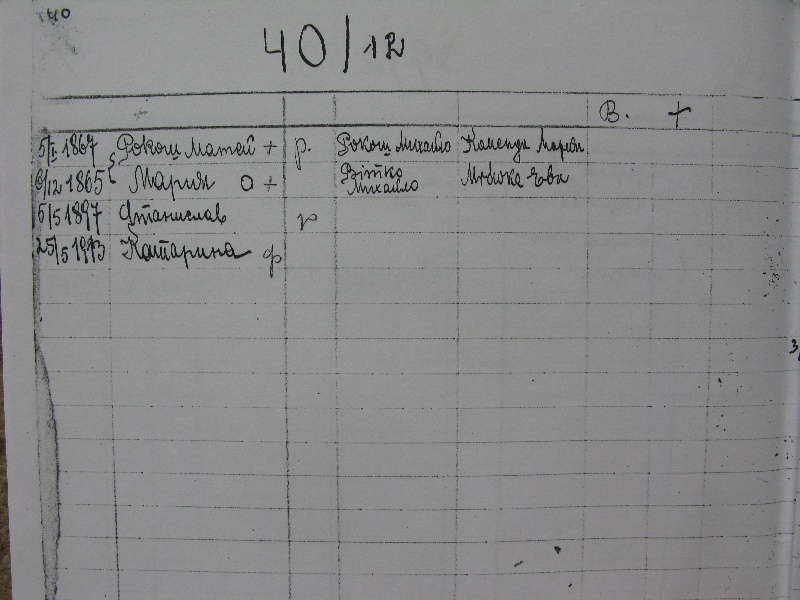 40
40/12
В. +
5/I 1867 Рокош Матей + р. Рокош Михайло Коменди Марія
6/12 1865 Мария о + Вітко Михайло Ева
5/5 1897 Станислав р
25/5 1913 Катарина ф
3/